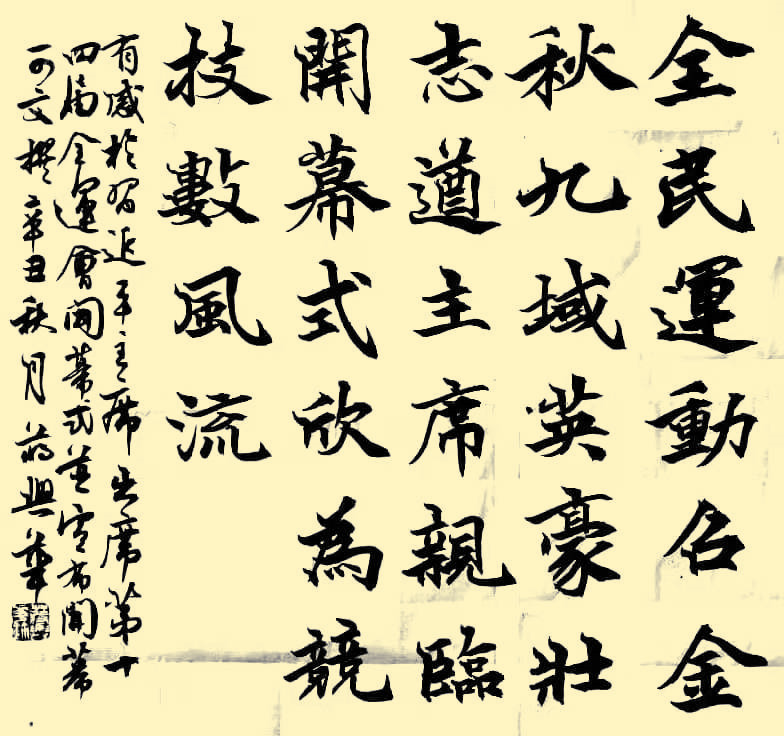 全民運動召金
秋九域英豪壯
志遒主席親臨
開幕式欣為競
技數風流
有感於習近平主席出席第十
四届全運會開幕式並宣布開幕
可文撰辛丑秋月蔣興華